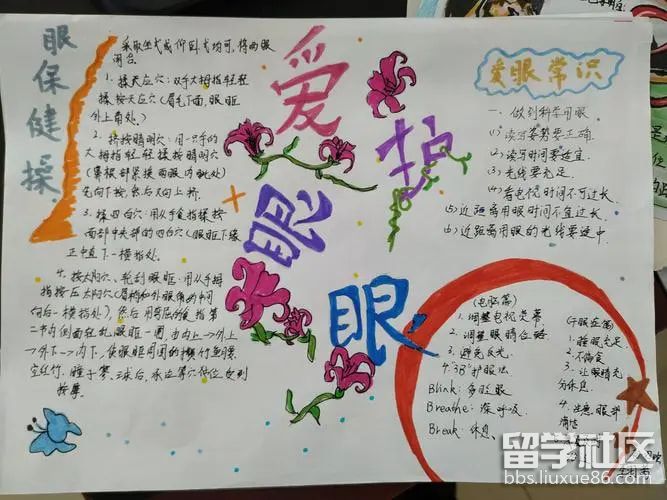 眼保健操
采取坐式或仰卧式均可,将两眼
闭合
1、揉天应穴:双手大拇指轻轻
揉按天应穴(眉毛下面,眼眶
外上角处)
2、挤按睛明穴:用一只手的
大拇指轻轻揉按睛明穴
(鼻根部紧挨两眼内眦处)
先向下按,然后又向上挤。
3、揉四白穴:用双手食指揉按
面部中央部的四白穴(眼眶下缘
正中直下一横指处。
4、按太阳穴、轮刮眼眶:用双手拇
指按压太阳穴(眉梢和外眼角的中间
向后一横指处),然后用弯屈的食指第
二节内侧面轻刮眼眶一圈,由内上→外上
→外下→内下,使眼眶周围的攒竹鱼腰
丝竹
爱护眼眼
爱眼常识
一、做到科学用眼
(1)读写姿势要正确
(2)读写时间要适宜
(3)光线要充足
(4)看电视时间不可过长
(5)近距离用眼时间不宜过长
近距离用眼的光线要适中
(电脑篇)
1.调整电视荧幕
2.调整眼睛位路
3.避免反光
4."3B"护眼法
Blink:多眨眼
Breathe:深呼吸
Break:休息
1.睡眠充足
2.不偏食
3.让眼睛充
分休息
4.注意眼部
清洁
留学社区
bbs.liuxue86.com